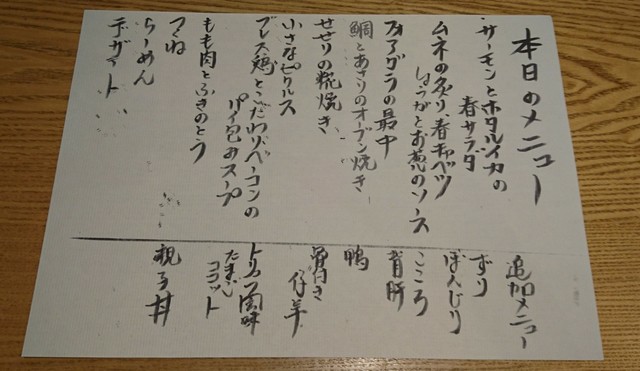 本日のメニュー
・サーモンとホタルイカの
春サラダ
ムネの炙り春キャベツ
しょうがとお葱のソース
フォアグラの最中
鯛とあさりのオーブン焼き
せせりの糀焼き
小さなピクルス
ブレス鶏とこだわりベーコンの
パイ包みスープ
もも肉とふきのとう
つくね
らーめん
デザート
追加メニュー
ずり
ぼんじり
こころ
背肝
鴨
骨付き
仔羊
トリュフ風味
たまごの
ココット
親子丼